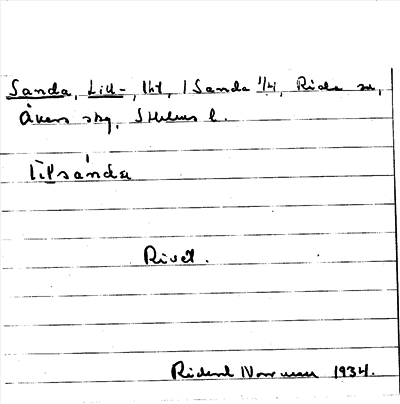 Sanda, Lill-, lht, i Sanda 1/4, Ridö sn,
Åkers skg, Sthlms l.
lilsánda
Rivet.
Rickard Norrman 1934.